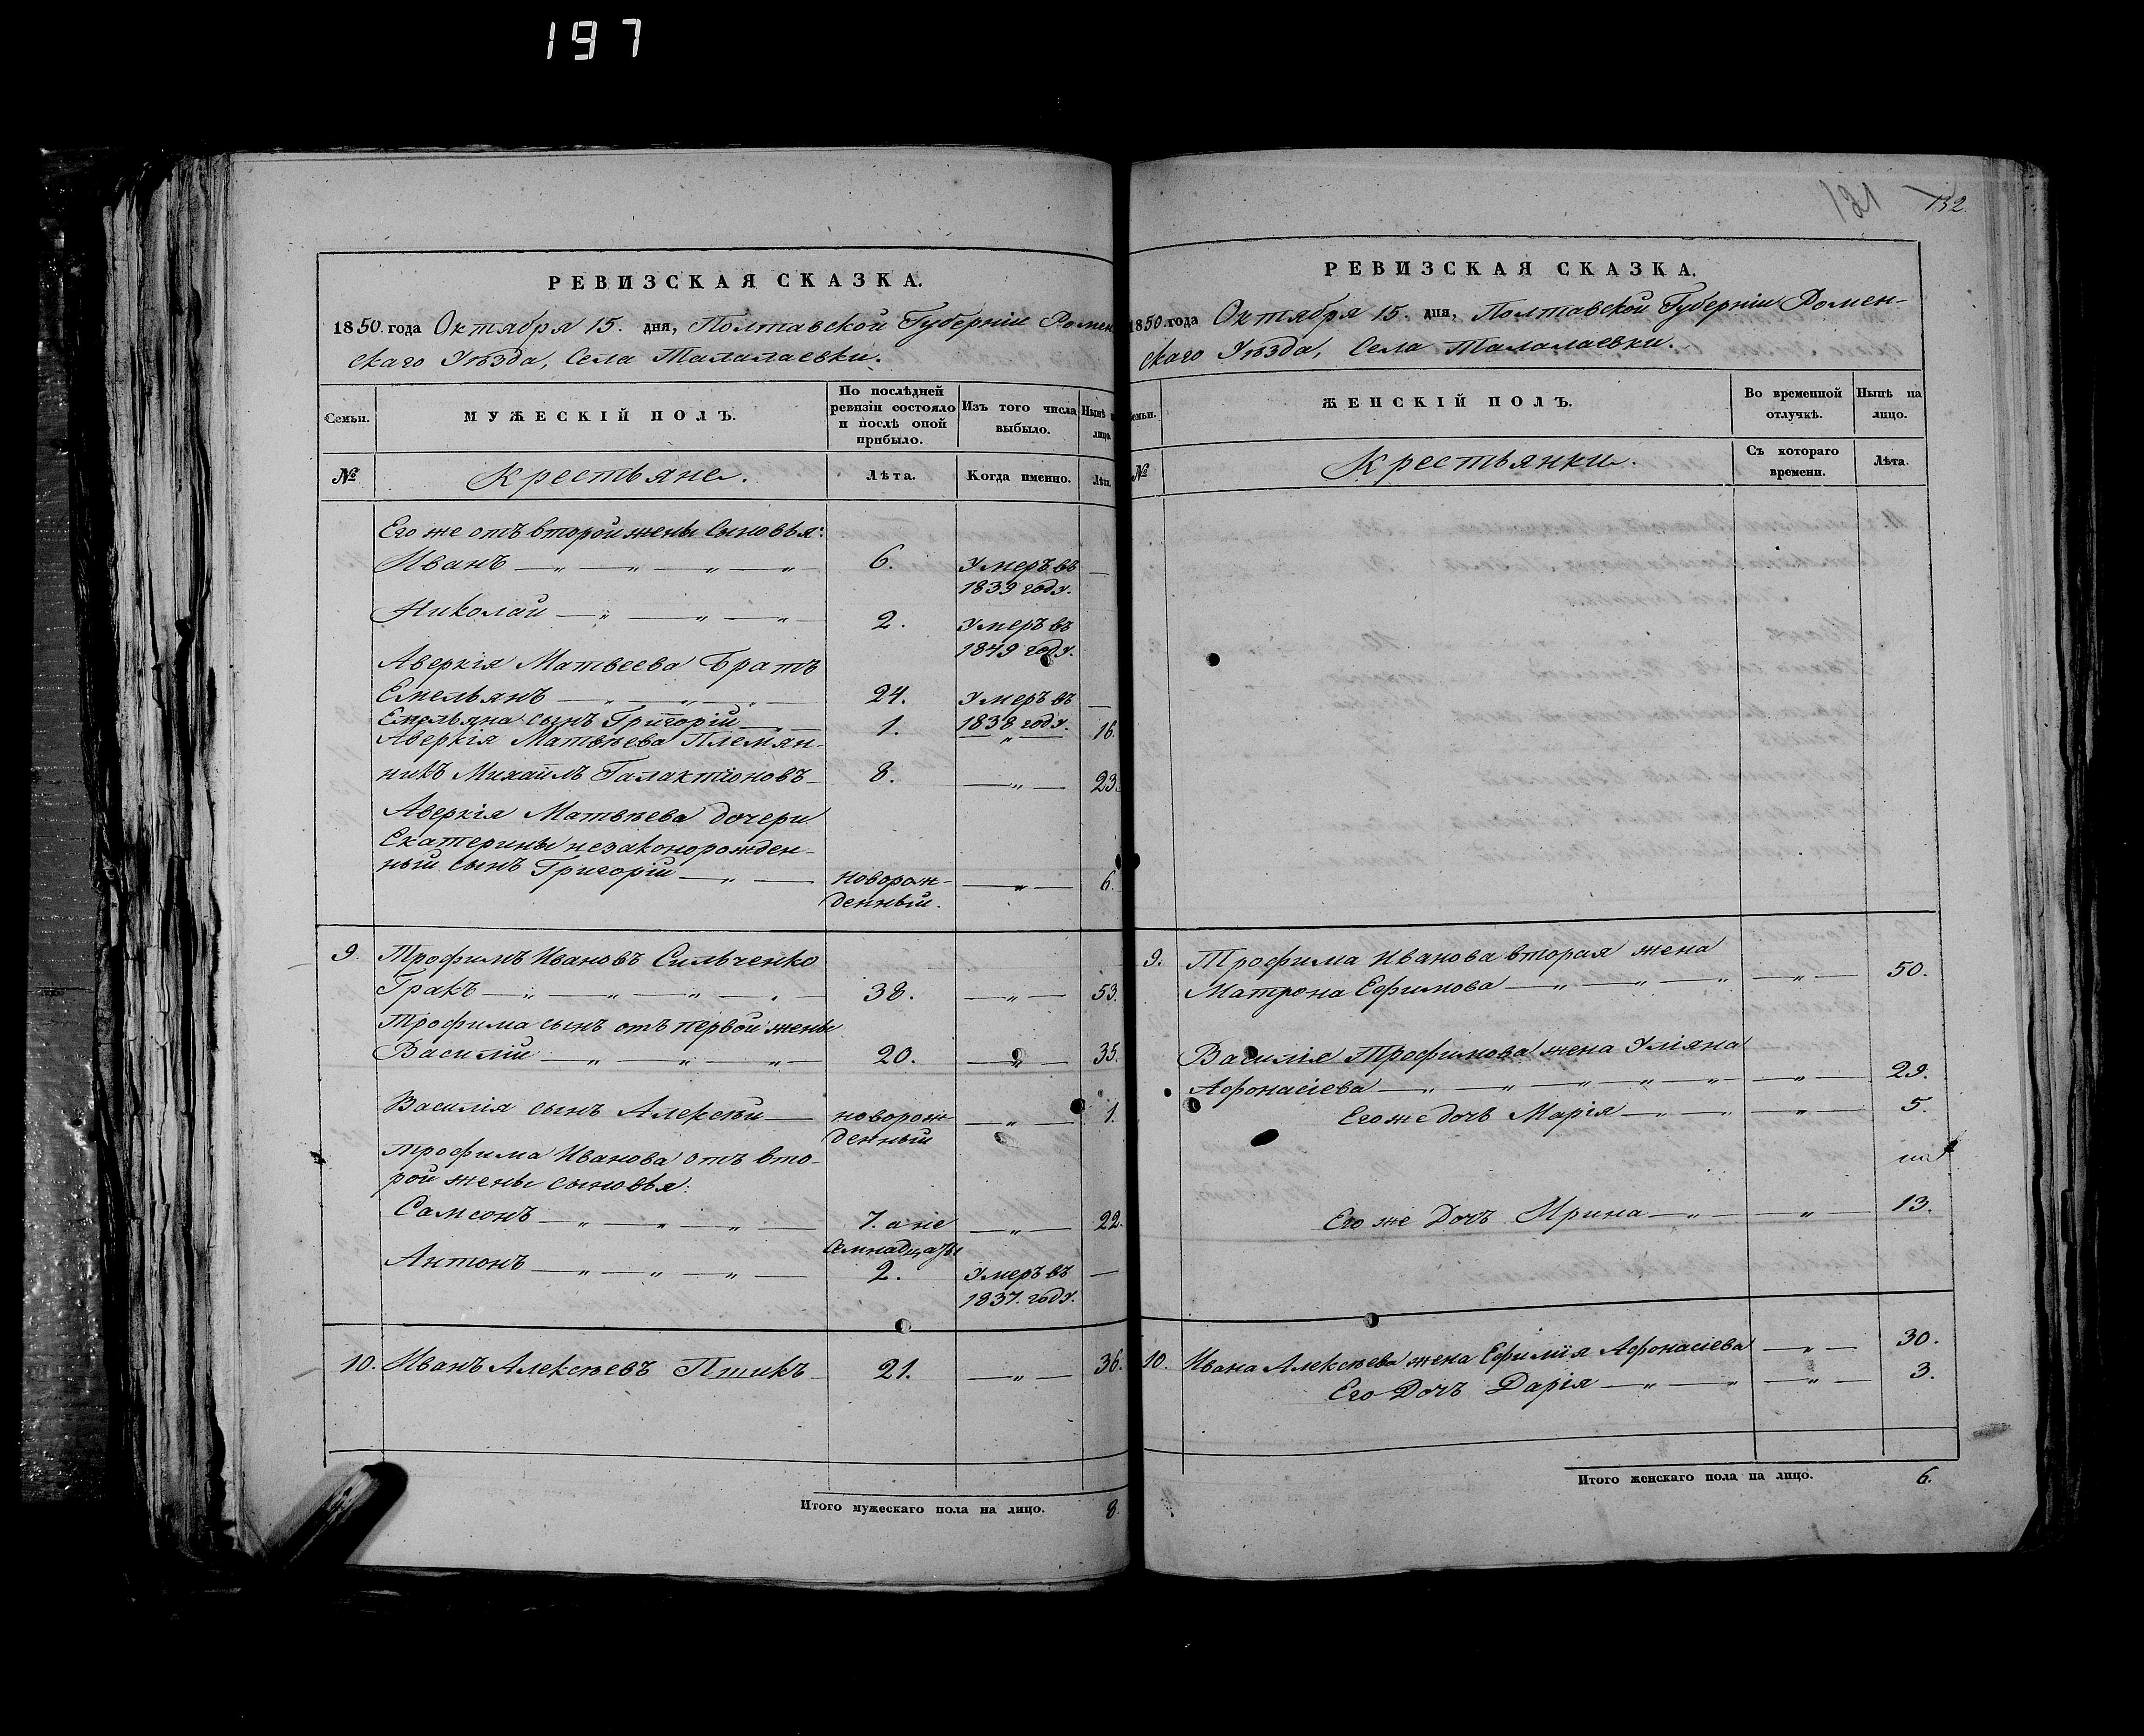 197
РЕВИЗСКАЯ СКАЗКА.
1850. года Октября 15. дня, Полтавской Губерніи Ромен
скаго Уѣзда, Села Талалаевки.
Семьи.
МУЖЕСКІЙ ПОЛЪ.
По послѣдней ревизіи состояло и послѣ оной прибыло.
Изъ того числа выбыло.
Нынѣ н лицо.
№
Крестьяне.
Лѣта.
Когда именно.
Лѣта.
Его же отъ второй жены сыновья:
Иванъ — „ — „ — „ — „ 6. Умеръ въ 1839 году. —
Николай — „ — „ — „ 2. Умеръ въ 1849 году.
Аверкія Матвеева Братъ
Емельянъ — „ — „ — 24. Умеръ въ 1838 году. —
Емельяна сынъ Григорій — 1. — „ — 16.
Аверкія Матвѣева Племян-
никъ Михаилъ Галактіоновъ — 8. — „ — 23.
Аверкія Матвѣева дочери
Екатерины незаконорожден-
ный сынъ Григорій — „ — новорож-
денный. — „ — 6.
9. Трофимъ Ивановъ Сильченко
Гракъ — „ — „ — „ — 38. — „ — 53.
Трофима сынъ отъ первой жены
Василій — „ — „ — „ — 20. — „ — 35.
Василія сынъ Алексѣй — новорож-
денный — „ — 1.
Трофима Иванова отъ вто-
рой жены сыновья:
Самсонъ — „ — „ — „ — 7. а не
семнадцать — „ — 22.
Антонъ — „ — „ — „ — 2. Умеръ въ —
1837. году.
10. Иванъ Алексѣевъ Пшикъ 21. — „ — 36.
Итого мужескаго пола на лицо. 8.
121 132.
РЕВИЗСКАЯ СКАЗКА.
1850. года Октября 15. дня, Полтавской Губерніи Ромен-
скаго Уѣзда, Села Талалаевки.
емьи.
ЖЕНСКІЙ ПОЛЪ.
Во временной отлучкѣ.
Нынѣ на лицо.
№
Крестьянки.
Съ котораго времени.
Лѣта.
9. Трофима Иванова вторая жена
Матрона Ефимова — „ — „ — „ — „ — 50.
Василія Трофимова жена Уліяна
Афонасіева — „ — „ — „ — „ — „ — „ — 29.
Его же дочь Марія — „ — „ — „ — 5.
Его же Дочь Ирина — „ — „ — 13.
10. Ивана Алексѣева жена Ефимія Афонасіева — „ — 30.
Его Дочь Дарія — „ — „ — „ — 3.
Итого женскаго пола на лицо. 6.